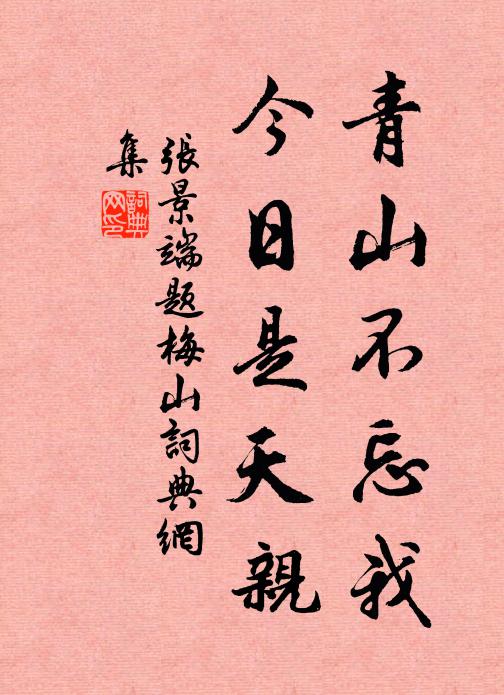 青山不忘我
今日是天親
張景端題梅山詞典網
集
詞典
网印